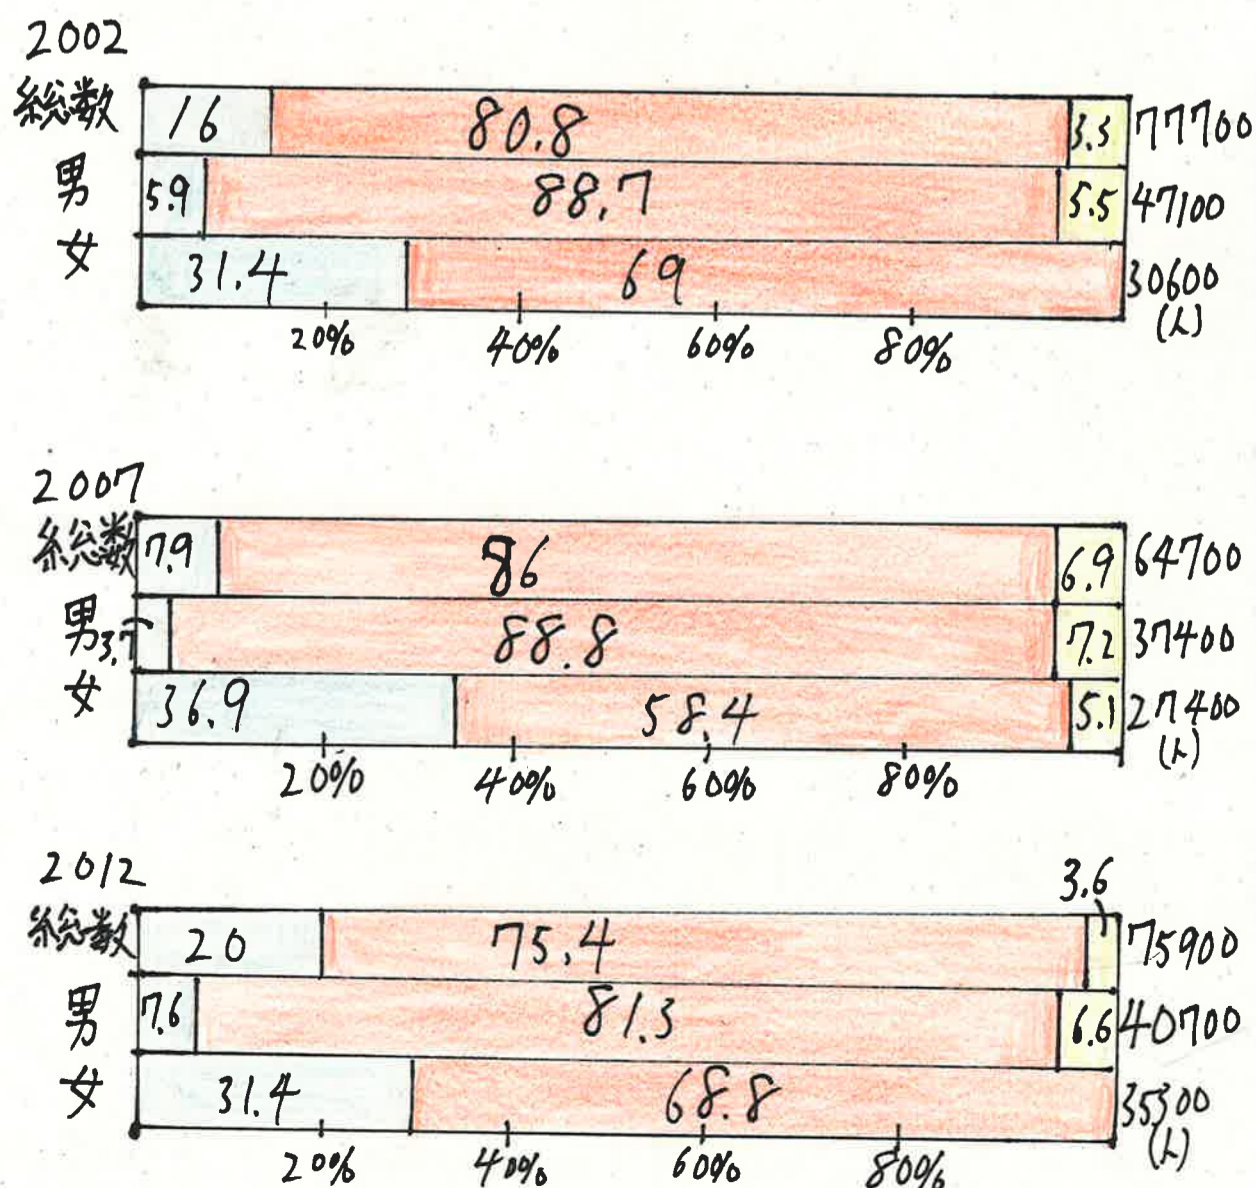 2002
総数 16 80.8 3.3 77700
男 5.9 88.7 5.5 47100
女 31.4 69 30600
(人)
20% 40% 60% 80%
2007
総数 7.9 86 6.9 64700
男 3.7 88.8 7.2 37400
女 36.9 58.4 5.1 27400
(人)
20% 40% 60% 80%
2012
3.6
総数 20 75.4 75900
男 7.6 81.3 6.6 40700
女 31.4 68.8 35300
(人)
20% 40% 60% 80%